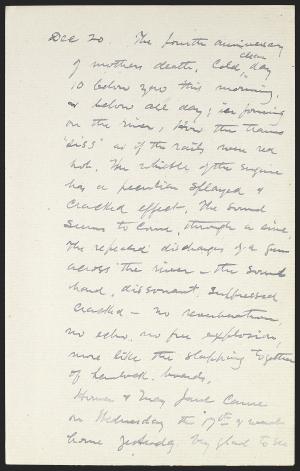 Dec 20. The fourth anniversary
of mothers death. Cold, clear day
10 below zero this morning,
& below all day; ice forming
on the river, how the trains
"hiss" as if the rails were red
hot. The whistle of the engine
has a peculiar splayed &
cracked effect. The sound
seems to come, through a sieve.
The repeated discharges of a gun
across the river – the sound
hard, dissonant, suppressed
cracked – no reverberation,
no echo, no free explosion,
more like the slapping together
of hemlock boards.
Homer & May Jane came
on Wednesday the 17th & went
home yesterday. Very glad to see